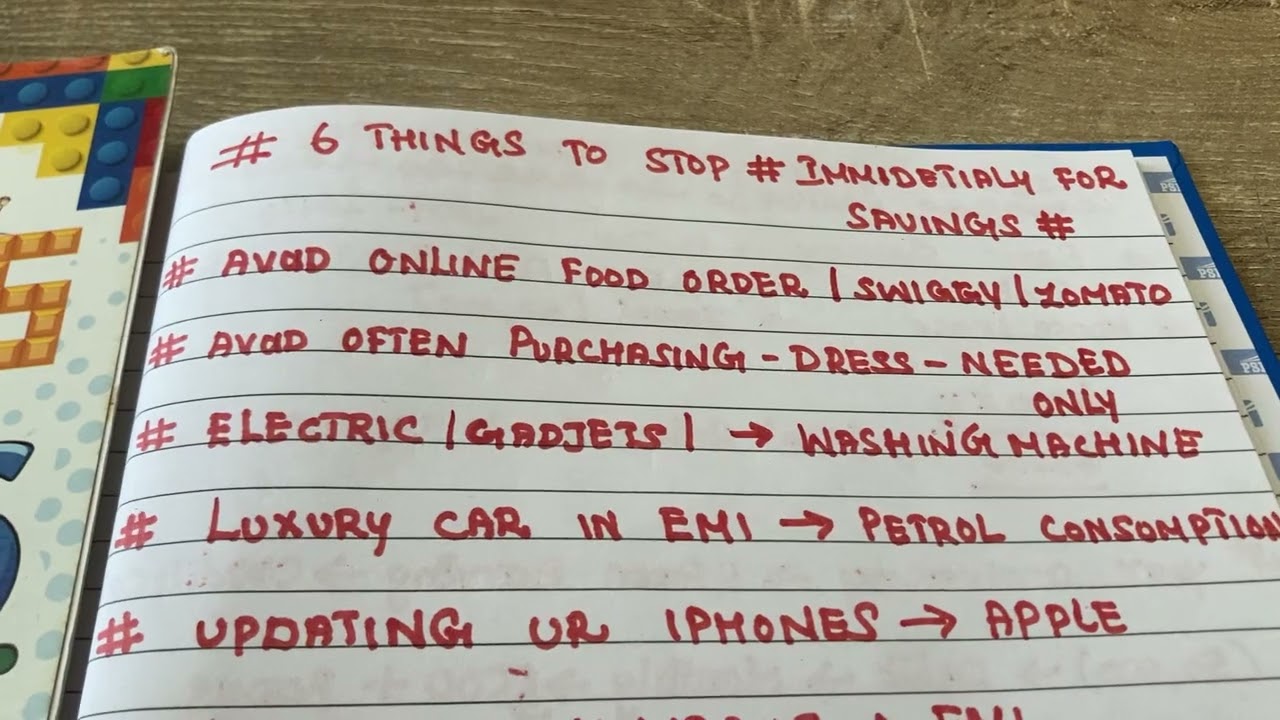 # 6 THINGS TO STOP # IMMIDETIALY FOR
SAVINGS #
# AVOID ONLINE FOOD ORDER / SWIGGY / ZOMATO
# AVOID OFTEN PURCHASING - DRESS - NEEDED
ONLY
# ELECTRIC / GADJETS / → WASHING MACHINE
# LUXURY CAR IN EMI → PETROL CONSOMPTION
# UPDATING UR IPHONES → APPLE
EMI